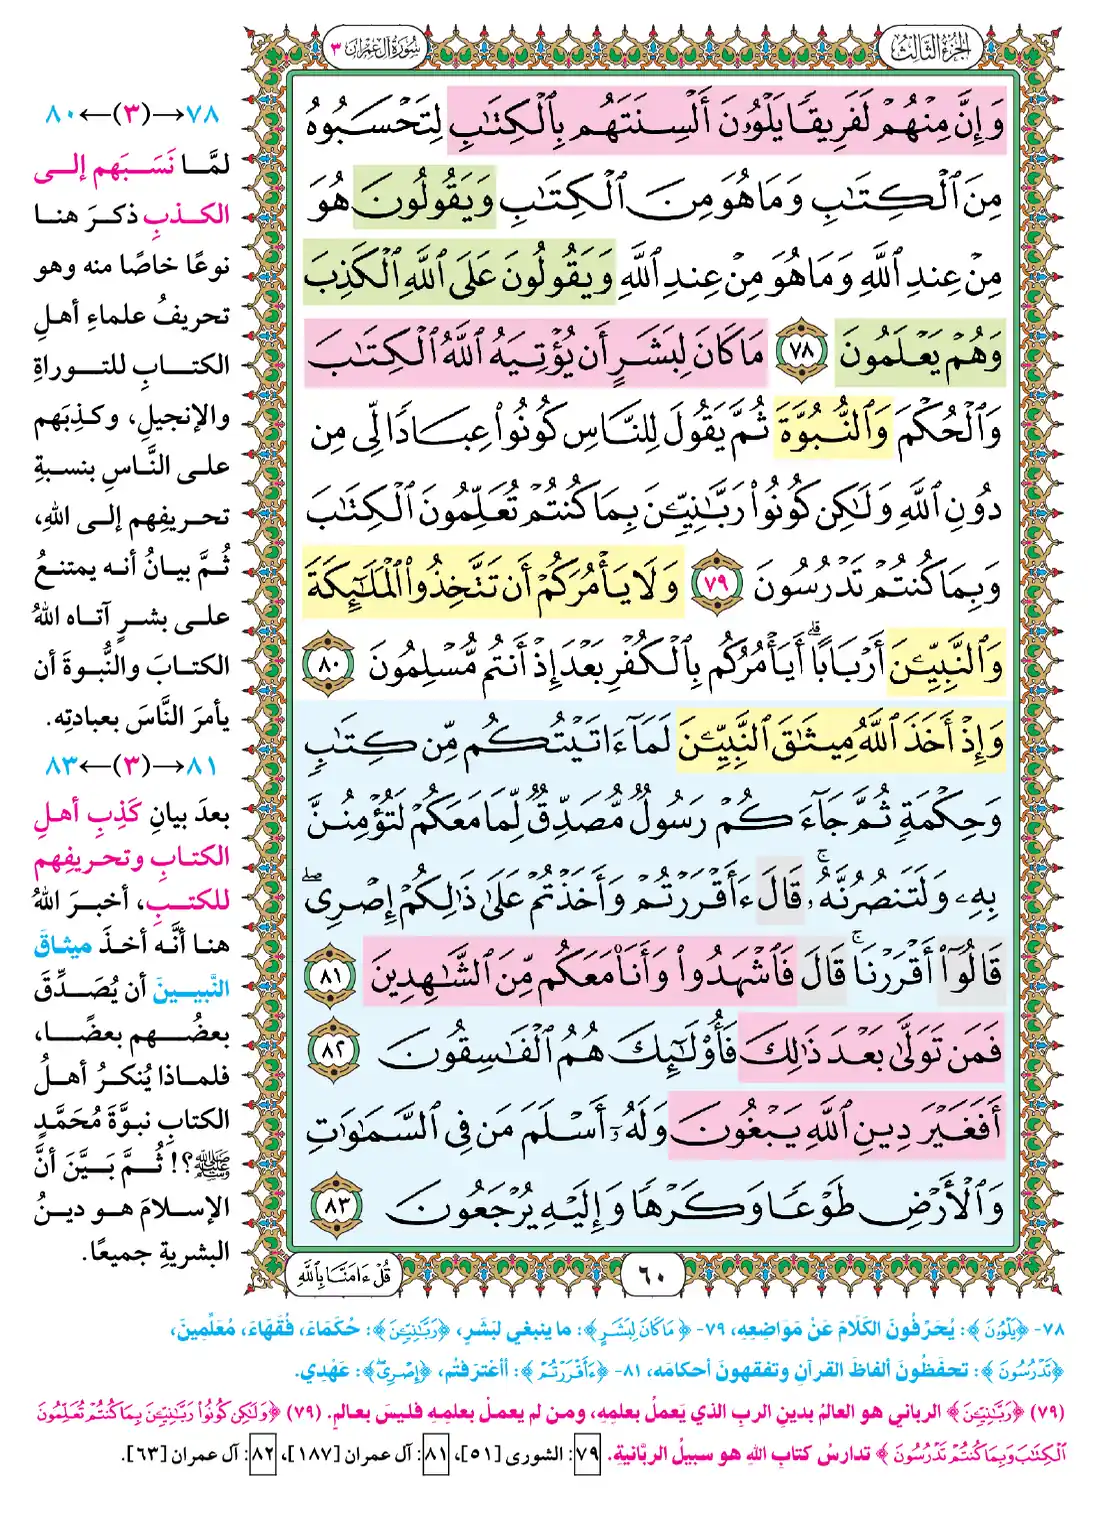 الجزء الثالث
سورة آل عمران ٣
وَإِنَّ مِنْهُمْ لَفَرِيقًا يَلْوُۥنَ أَلْسِنَتَهُم بِٱلْكِتَٰبِ لِتَحْسَبُوهُ
مِنَ ٱلْكِتَٰبِ وَمَا هُوَ مِنَ ٱلْكِتَٰبِ وَيَقُولُونَ هُوَ
مِنْ عِندِ ٱللَّهِ وَمَا هُوَ مِنْ عِندِ ٱللَّهِ وَيَقُولُونَ عَلَى ٱللَّهِ ٱلْكَذِبَ
وَهُمْ يَعْلَمُونَ ٧٨ مَا كَانَ لِبَشَرٍ أَن يُؤْتِيَهُ ٱللَّهُ ٱلْكِتَٰبَ
وَٱلْحُكْمَ وَٱلنُّبُوَّةَ ثُمَّ يَقُولَ لِلنَّاسِ كُونُوا۟ عِبَادًا لِّى مِن
دُونِ ٱللَّهِ وَلَٰكِن كُونُوا۟ رَبَّٰنِيِّۦنَ بِمَا كُنتُمْ تُعَلِّمُونَ ٱلْكِتَٰبَ
وَبِمَا كُنتُمْ تَدْرُسُونَ ٧٩ وَلَا يَأْمُرَكُمْ أَن تَتَّخِذُوا۟ ٱلْمَلَٰٓئِكَةَ
وَٱلنَّبِيِّۦنَ أَرْبَابًا ۗ أَيَأْمُرُكُم بِٱلْكُفْرِ بَعْدَ إِذْ أَنتُم مُّسْلِمُونَ ٨٠
وَإِذْ أَخَذَ ٱللَّهُ مِيثَٰقَ ٱلنَّبِيِّۦنَ لَمَآ ءَاتَيْتُكُم مِّن كِتَٰبٍ
وَحِكْمَةٍ ثُمَّ جَآءَكُمْ رَسُولٌ مُّصَدِّقٌ لِّمَا مَعَكُمْ لَتُؤْمِنُنَّ
بِهِۦ وَلَتَنصُرُنَّهُۥ ۚ قَالَ ءَأَقْرَرْتُمْ وَأَخَذْتُمْ عَلَىٰ ذَٰلِكُمْ إِصْرِى ۖ
قَالُوٓا۟ أَقْرَرْنَا ۚ قَالَ فَٱشْهَدُوا۟ وَأَنَا۠ مَعَكُم مِّنَ ٱلشَّٰهِدِينَ ٨١
فَمَن تَوَلَّىٰ بَعْدَ ذَٰلِكَ فَأُو۟لَٰٓئِكَ هُمُ ٱلْفَٰسِقُونَ ٨٢
أَفَغَيْرَ دِينِ ٱللَّهِ يَبْغُونَ وَلَهُۥٓ أَسْلَمَ مَن فِى ٱلسَّمَٰوَٰتِ
وَٱلْأَرْضِ طَوْعًا وَكَرْهًا وَإِلَيْهِ يُرْجَعُونَ ٨٣
٦٠
قُلْ ءَامَنَّا بِٱللَّهِ
٧٨→(٣)←٨٠
لمَّا نَسَبَهم إلى
الكذبِ ذكرَ هنا
نوعًا خاصًا منه وهو
تحريفُ علماءِ أهلِ
الكتابِ للتوراةِ
والإنجيلِ، وكذِبَهم
على النَّاسِ بنسبةِ
تحريفِهم إلى اللهِ،
ثُمَّ بيانُ أنه يمتنعُ
على بشرٍ آتاه اللهُ
الكتابَ والنُّبوةَ أن
يأمرَ النَّاسَ بعبادتِه.
٨١→(٣)←٨٣
بعدَ بيانِ كَذِبِ أهلِ
الكتابِ وتحريفِهم
للكتبِ، أخبرَ اللهُ
هنا أنَّه أخذَ ميثاقَ
النَّبيينَ أن يُصَدِّقَ
بعضُهم بعضًا،
فلماذا يُنكرُ أهلُ
الكتابِ نبوَّةَ مُحَمَّدٍ
ﷺ؟! ثُمَّ بَيَّنَ أنَّ
الإسلامَ هو دينُ
البشريةِ جميعًا.
٧٨- ﴿يَلْوُۥنَ﴾: يُحَرِّفُونَ الكَلَامَ عَنْ مَوَاضِعِهِ، ٧٩- ﴿مَا كَانَ لِبَشَرٍ﴾: ما ينبغي لبَشَرٍ، ﴿رَبَّٰنِيِّۦنَ﴾: حُكَمَاءَ، فُقَهَاءَ، مُعَلِّمِينَ،
﴿تَدْرُسُونَ﴾: تحفَظُونَ ألفاظَ القرآنِ وتفقهونَ أحكامَه، ٨١- ﴿ءَأَقْرَرْتُمْ﴾: أاعْتَرَفتُم، ﴿إِصْرِى﴾: عَهْدِي.
(٧٩) ﴿رَبَّٰنِيِّۦنَ﴾ الرباني هو العالمُ بدينِ الربِ الذي يَعملُ بعلمِهِ، ومن لم يعملْ بعلمِهِ فليسَ بعالمٍ. (٧٩) ﴿وَلَٰكِن كُونُوا۟ رَبَّٰنِيِّۦنَ بِمَا كُنتُمْ تُعَلِّمُونَ
ٱلْكِتَٰبَ وَبِمَا كُنتُمْ تَدْرُسُونَ﴾ تدارسُ كتابِ اللهِ هو سبيلُ الربَّانيةِ. ٧٩: الشورى [٥١]، ٨١: آل عمران [١٨٧]، ٨٢: آل عمران [٦٣].